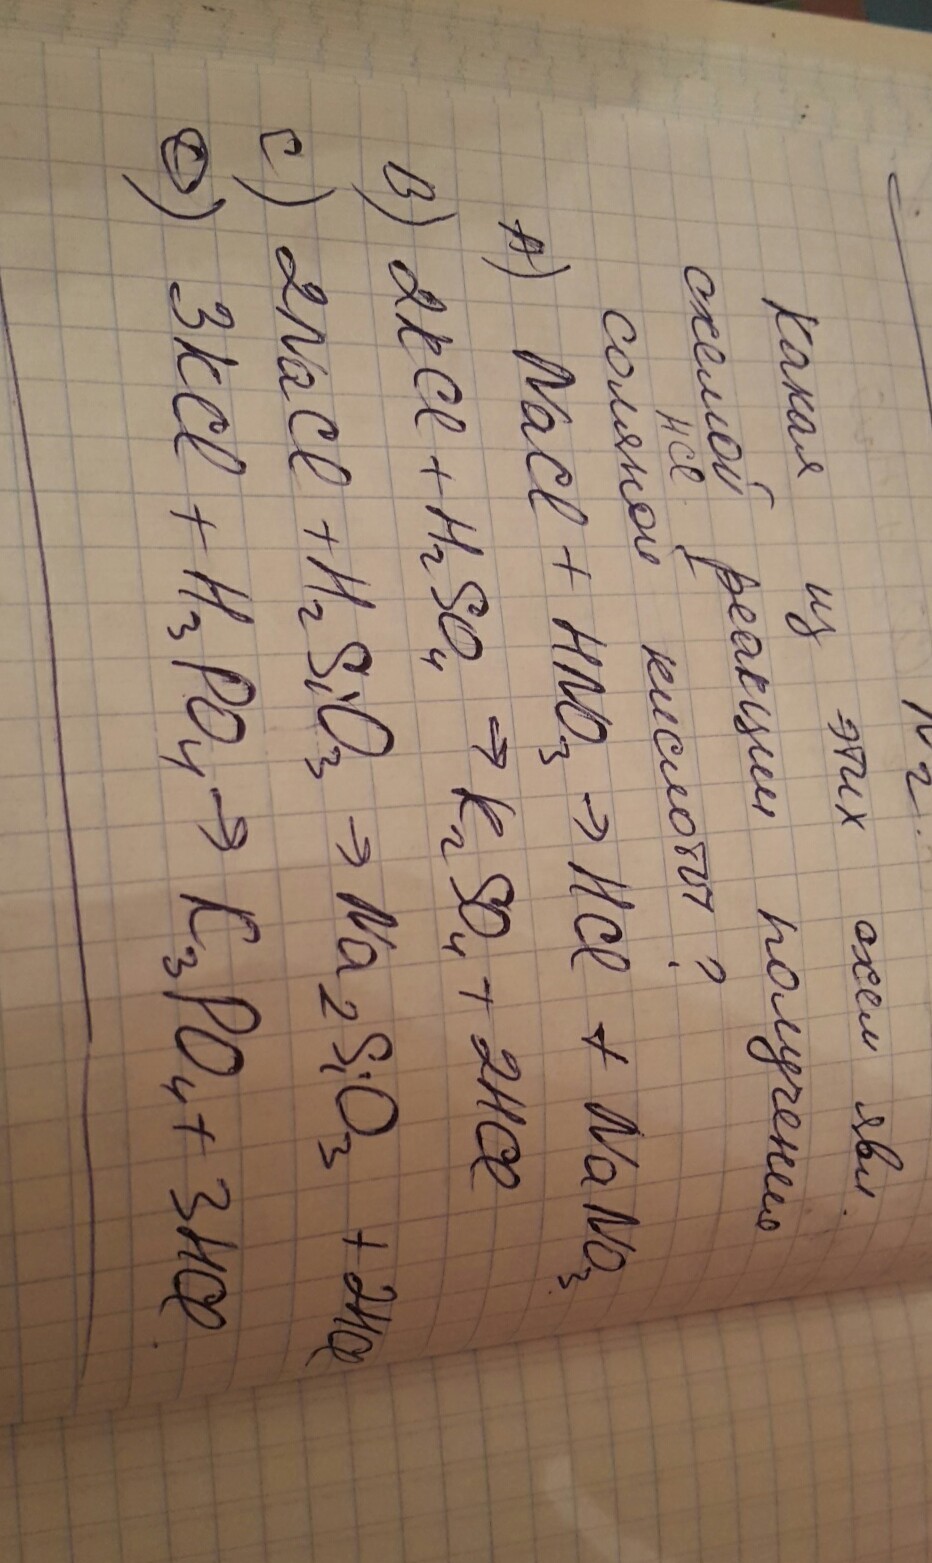 N 2.
Какая из этих схем явл.
схемой реакции получения
HCl
соляной кислоты?
A) NaCl + HNO₃ → HCl + NaNO₃
B) 2KCl + H₂SO₄ → K₂SO₄ + 2HCl
C) 2NaCl + H₂SiO₃ → Na₂SiO₃ + 2HCl
D) 3KCl + H₃PO₄ → K₃PO₄ + 3HCl